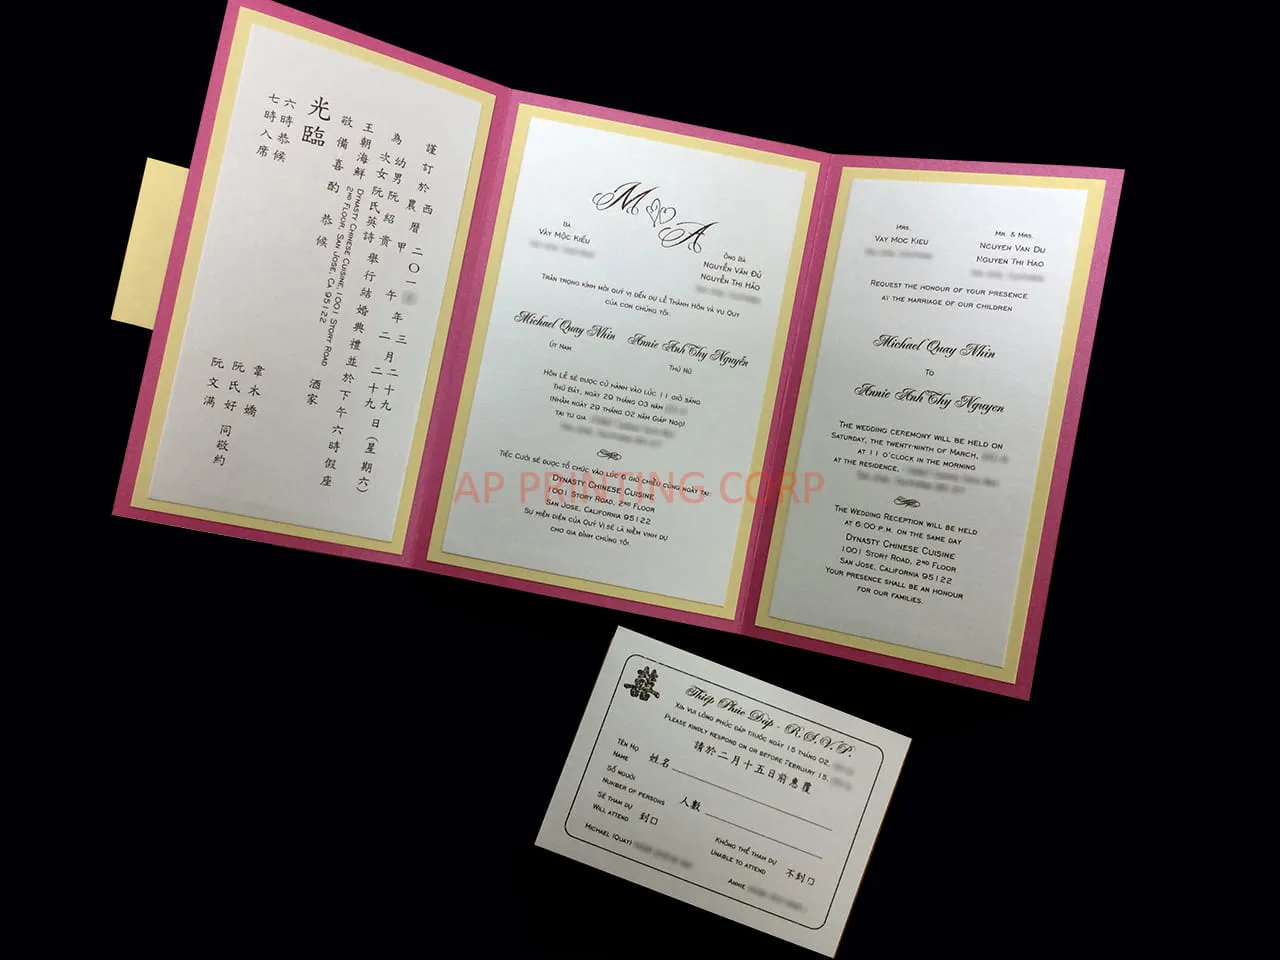 謹訂於西
農
曆二〇一
年三月二十九
甲午年二月二十九
日(星期六)
為
幼男阮紹貴
次女阮氏英詩
舉行結婚典禮並於下午六時假座
王朝海鮮
Dynasty Chinese Cuisine, 1001 Story Road
2nd Floor, San Jose, CA 95122
酒家
敬備喜酌 恭候
光臨
韋木嬌
阮氏好
阮文滿
同敬約
六時恭候
七時入席
M A
Bà
Vày Mộc Kiều
Ông Bà
Nguyễn Văn Đủ
Nguyễn Thị Hảo
Trân trọng kính mời quý vị đến dự lễ Thành Hôn và Vu Quy
của con chúng tôi:
Michael Quay Nhin Annie Anh Thy Nguyễn
Út Nam Thứ Nữ
Hôn lễ sẽ được cử hành vào lúc 11 giờ sáng
Thứ Bảy, ngày 29 tháng 03 năm
(Nhằm ngày 29 tháng 02 năm Giáp Ngọ)
Tại tư gia
Tiệc Cưới sẽ được tổ chức vào lúc 6 giờ chiều cùng ngày tại:
Dynasty Chinese Cuisine
1001 Story Road, 2nd Floor
San Jose, California 95122
Sự hiện diện của Quý Vị sẽ là niềm vinh dự
cho gia đình chúng tôi.
Mrs.
Vay Moc Kieu
Mr. & Mrs.
Nguyen Van Du
Nguyen Thi Hao
Request the honour of your presence
at the marriage of our children
Michael Quay Nhin
To
Annie Anh Thy Nguyen
The wedding ceremony will be held on
Saturday, the twenty-ninth of March,
at 11 o'clock in the morning
at the residence,
The Wedding Reception will be held
at 6:00 p.m. on the same day
Dynasty Chinese Cuisine
1001 Story Road, 2nd Floor
San Jose, California 95122
Your presence shall be an honour
for our families.
AP PRINTING CORP
囍
Thiệp Phúc Đáp - R.S.V.P.
Xin vui lòng phúc đáp trước ngày 15 tháng 02,
Please kindly respond on or before February 15,
請於二月十五日前惠覆
Tên Họ
Name 姓名
Số người
Number of persons 人數
Sẽ tham dự
Will attend 到□
Không thể tham dự
Unable to attend 不到□
Michael (Quay)
Annie